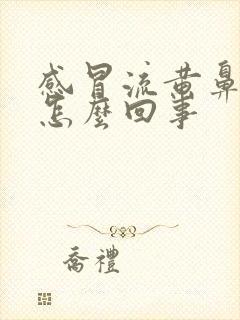 感冒流黄鼻
怎麼回事
喬禮